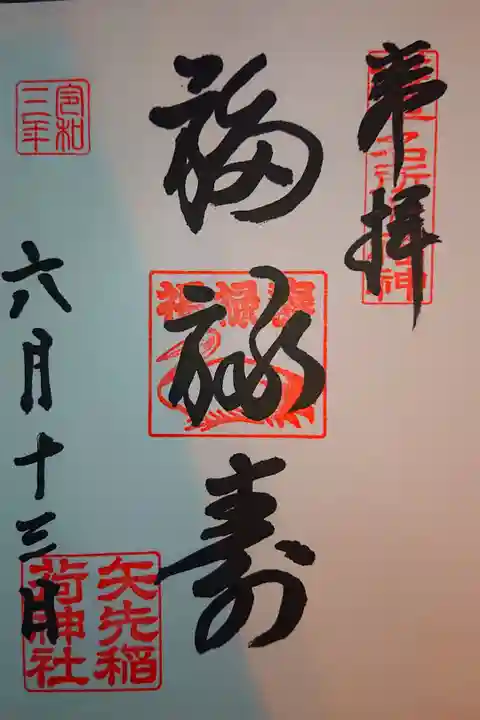 奉拝
福禄寿
令和
三年
六月十三日
矢先稲
荷神社